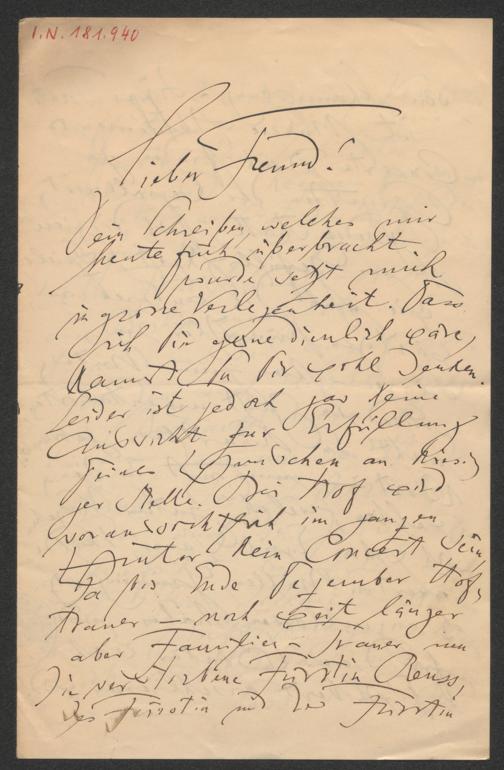 I.N. 181.940
Lieber Freund!
Dein Schreiben, welches mir
heute früh überbracht
wurde setzt mich
in grosse Verlegenheit. Dass
ich Dir gerne dienlich wäre,
kannst Du Dir wohl denken.
Leider ist jedoch gar keine
Aussicht zur Erfüllung
Deines Wunsches an hiesi-
ger Stelle. Bei Hof wird
voraussichtlich im ganzen
Winter kein Concert sein,
da bis Ende Dezember Hof-
trauer – noch weit länger
aber Familien-Trauer um
die verstorbene Fürstin Reuss,
des Fürsten und der Fürstin